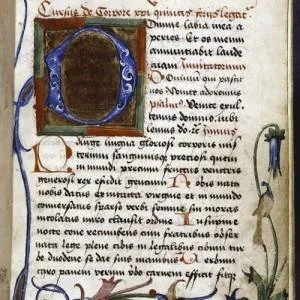 Cursus de Corpore xpi quintis feriis legat
Domine labia mea a
peries Et os meum
annuntiabit laude
tuam Invitatorium
Dominum qui pascit
nos Venite adoremus
psalmus Venite exul
temus domino, iubi
lemus deo Jmnus
Pange lingua gloriosi corporis mis
terium sanguinisque preciosi quem
in mundi precium fructus ventris
generosi rex effudit gentium Nobis nata
nobis datus ex intacta virgine et in mundo
conversatus sparso verbi semine sui moras
incolatus miro clausit ordine In supreme
nocte cene recumbens cum fratribus obser
vata lege plene cibis in legalibus cibum tur
be duodene se dat suis manibus Verbum
caro panem verum vbo carnem efficit fitqz